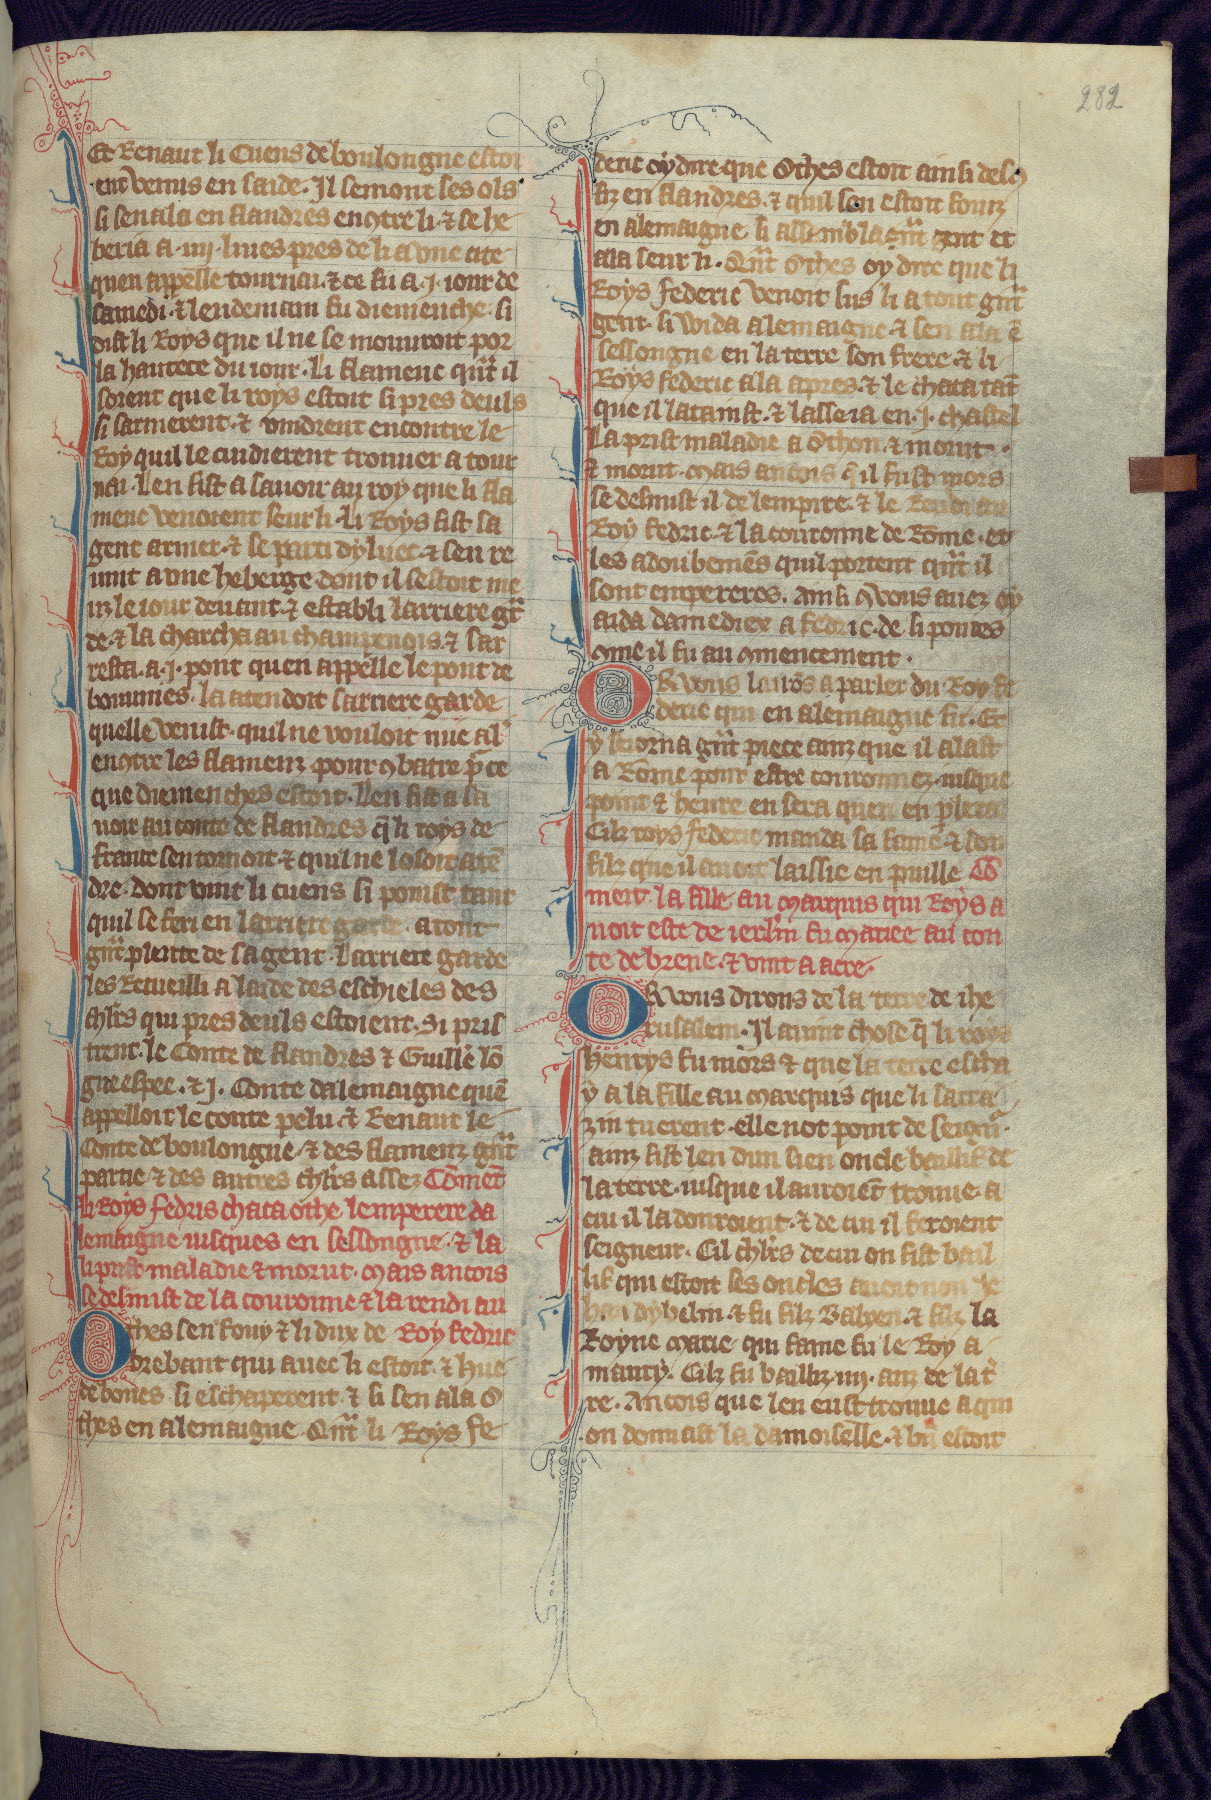 282
Et Renaut li Cuens de boulongne estoi
ent venus en saide. Il semont ses ols
si sen ala en flandres encontre li. ⁊ se he
beria a .iiij. liues pres de li a vne cite
quen appelle tournai. ⁊ ce fu a .j. iour de
samedi. ⁊ lendemain fu diemenche. si
dist li Roys que il ne se mouuroit por
la hautece du iour. Li flamenc qũt il
sorent que li roys estoit si pres deuls
si sarmerent. ⁊ vindrent encontre le
Roy quil le cuidierent trouuer a tour
nai. Len fist a sauoir au roy que li fla
menc venoient seur li. li Roys fist sa
gent armer. ⁊ se parti dyluec. ⁊ sen re
uint a vne heberge dont il sestoit me
uz le iour deuant. ⁊ establi larriere gar
de. ⁊ la charcha au champenois. ⁊ sar
resta .a .j. pont quen appelle le pont de
bouuines. la atendoit sarriere garde
quelle venist. quil ne vouloit mie al
encontre les flamenz pour combatre p̃ ce
que diemenches estoit. Len fist a sa
uoir au conte de flandres q̃ li roys de
france sen tornoit. ⁊ quil ne losoit atẽ
dre. dont vint li cuens si pomist tant
quil se feri en larriere garde. a tout
grãt plente de sa gent. Larriere garde
les Recueilli a laide des eschieles des
chl̃rs qui pres deuls estoient. Si pris
trent. le Conte de flandres ⁊ Guille lõ
gue espee. ⁊ .j. Conte dalemaigne quẽ
appelloit le conte pelu. ⁊ Renaut le
Conte de boulongne. ⁊ des flamenz grãt
partie ⁊ des autres chl̃rs assez Cõmẽt
li Roys fedris chaca othe lemperere da
lemaigne iusques en sessongne. ⁊ la
li prist maladie ⁊ morut. Mais ancois
se desmist de la couronne ⁊ la rendi au
Othes sen fouy ⁊ li dux de Roy fedric
brebant qui auec li estoit. ⁊ hue
de boues. si eschaperent. ⁊ si sen ala O
thes en alemaigne. Qũt li Roys fe
deric oy dire que Othes estoit ainsi desc
fiz en flandres. ⁊ quil sen estoit fouiz
en alemaigne. li assembla grãt gent et
ala seur li. Qũt Othes oy dire que li
Roys federic venoit sus li a tout grãt
gent. si wida alemaigne. ⁊ sen ala ẽ
sessongne en la terre son frere. ⁊ li
Roys federic ala apres. ⁊ le chaca tãt
que il lataint. ⁊ lasseia en .j. chastel
La prist maladie a Othon. ⁊ morut.
⁊ morut. Mais ancois q̃ il fust mors
se desmist il de lempire. ⁊ le Rendi au
Roy fedric. ⁊ la couronne de Rome. et
les adoubemẽs quil portent qũt il
sont empereres. Ainsi cõ vous auez oy
aida damediex a fedric. de si poures
cõme il fu au cõmencement.
Or vous lairõs a parler du Roy fe
deric qui en alemaigne fu. Et
y seiorna grãt piece ainz que il alast
a Rome pour estre couronnez. iusque
point ⁊ heure en sera quen en p̃lera
Cilz roys federic manda sa fame. ⁊ son
filz que il auoit laissie en puille Cõ
ment la fille au Marquis qui Roys a
uoit este de ierl̃m fu mariee au con
te de brene. ⁊ vint a acre.
Or vous dirons de la terre de ihe
rusalem. Il auint chose q̃ li roys
henrys fu mors ⁊ que la terre escha
y a la fille au marcquis que li harra
zin tuerent. elle not point de seignr̃.
ainz fist len dun sien oncle baillif de
la terre. iusque il auroiẽt trouue. a
cui il la donroient. ⁊ de cui il feroient
seigneur. Cil chl̃rs de cui on fist bail
lif qui estoit ses oncles auoit non Je
han dybelin. ⁊ fu filz Balyen. ⁊ filz la
Royne Marie. qui fame fu le Roy a
maury. Cilz fu bailliz .iiij. anz de la t̃
re. Ancois que len eust trouue a qui
on donnast la damoiselle. ⁊ bñ estoit